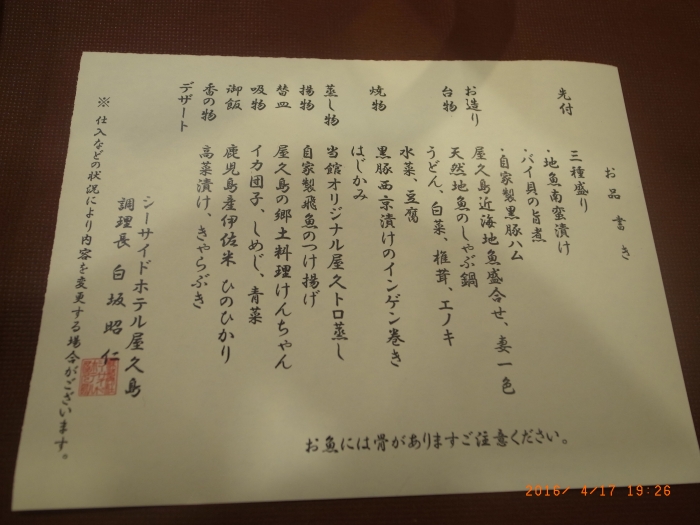 お品書き
先付 三種盛り
・地魚南蛮漬け
・バイ貝の旨煮
・自家製黒豚ハム
お造り 屋久島近海地魚盛合せ、妻一色
台物 天然地魚のしゃぶ鍋
うどん、白菜、椎茸、エノキ
水菜、豆腐
焼物 黒豚西京漬けのインゲン巻き
はじかみ
蒸し物 当館オリジナル屋久トロ蒸し
揚物 自家製飛魚のつけ揚げ
替皿 屋久島の郷土料理けんちゃん
吸物 イカ団子、しめじ、青菜
御飯 鹿児島産伊佐米 ひのひかり
香の物 高菜漬け、きゃらぶき
デザート
シーサイドホテル屋久島
調理長 白坂昭仁
※ 仕入などの状況により内容を変更する場合がございます。
お魚には骨がありますご注意ください。
2016/ 4/17 19:26